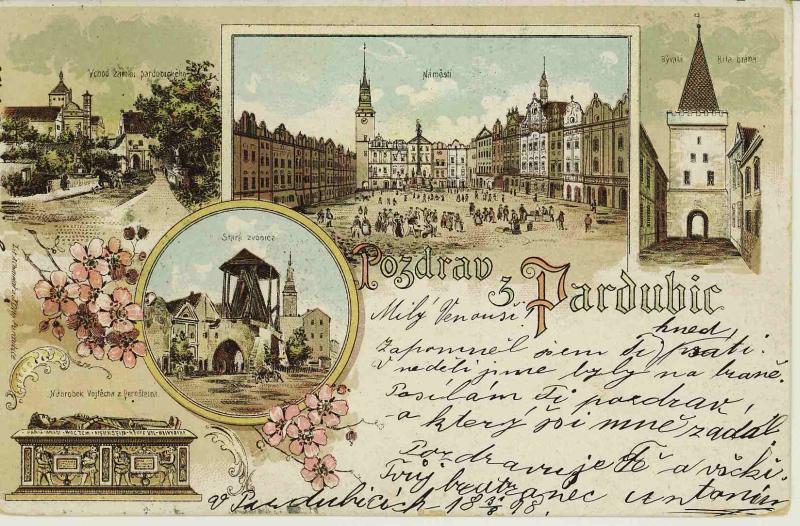 Vchod zámku pardubického
Náměstí
Bývalá Bílá brána
Stará zvonice
Náhrobek Vojtěcha z Pernšteina
Pozdrav
z Pardubic
Milý Venouši!
hned
Zapomněl jsem Ti psáti.
V neděli jsme byly na braně.
Posílám Ti pozdrav,
a který jsi mně zadal
Pozdravuje Tě a všěcki
Tvůj bratranec Antonín
V Pardubicích 18 98.